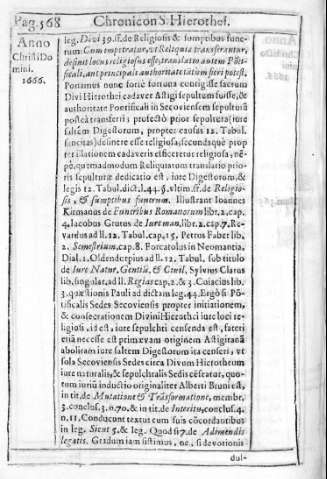 Pag. 568 Chronicon S. Hierothei.
Anno
Christi Domini.
1666.
leg. Divi 39. ff. de Religiosis & sumptibus funerum
Cum impetratur, ut Reliquiæ transferantur,
desinit locus religiosus esse, translatio autem Pōtificali,
ant principali authoritate tātùm fieri potest.
Ponamus nunc fortè fortuna contigisse sacrum
Divi Hierothei cadaver Astigi sepultum fuisse, &
authoritate Pontificali in Secoviensem sepulturā
postea transferri; profectò prior sepultura (iure
saltem Digestorum, propter causas 12. Tabul.
sancitas) desineret esse religiosa, secundùsque propter
illationem cadaveris efficeretur religiosa, nēpè,
quemadmodum Reliquiarum translatio prioris
sepulturæ dedicatio est, iure Digestorum, &
legis 12. Tabul. dict. l. 44. §. vltim. ff. de Religiosis,
& sumptibus funerum. Illustrant Ioannes
Kitmanus de Funeribus Romanorum libr. 2. cap.
4. Iacobus Grutus de Iure man. libr. 2. cap. 7. Revardus
ad ll. 12. Tabul. cap. 15. Petrus Faber lib.
2. Semestrium, cap. 8. Forcatolus in Neomantia,
Dial. 1. Oldendorpius ad ll. 12. Tabul. sub titulo
de Iure Natur. Gentiū, & Civil. Sylvius Clarus
lib. singular. ad ll. Regias cap. 2. & 3. Cuiacius lib.
3. quæstionis Pauli ad dictam leg. 44. Ergò si Pōtificalis
Sedes Secoviensis propter initiationem,
& consecrationem Divini Hierothei iure loci religiosi,
id est, iure sepulchri censenda est, fateri
etiā necesse est primævam originem Astigitanā
abolitam iure saltem Digestorum ita censeri, vt
sola Secoviensis Sedes circa Divum Hierotheum
iure naturalis, & sepulchralis Sedis cēseatur, quotum
iuriū inductio originaliter Alberti Bruni est,
in tit. de Mutatione & Trāsformatione, membr.
3. conclus. 3. n. 70. & in tit. de Interitu, conclus. 4.
n. 11. Conducunt textus cum suis cōcordantibus
in leg. Sicut 5. & leg. Quod si 7. de Adimendis
legatis. Gradum iam sistimus, ne, si devotionis
dul-